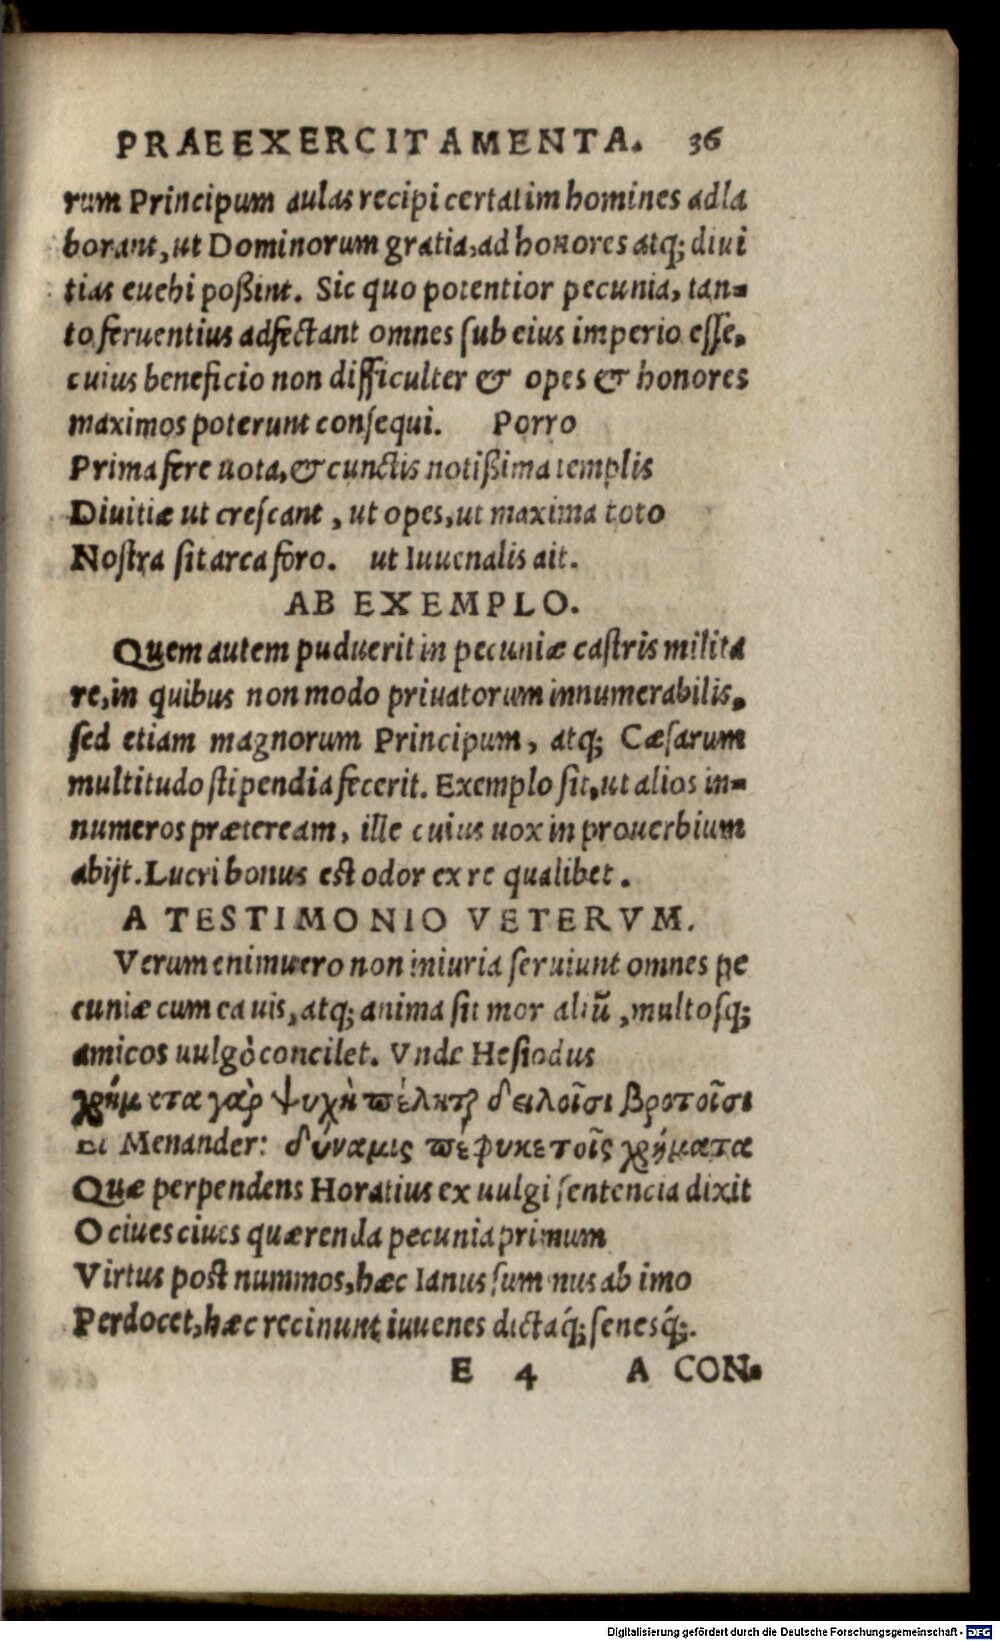 PRAEEXERCITAMENTA. 36
rum Principum aulas recipi certatim homines adla
borant, ut Dominorum gratia, ad honores atq; diui
tias euehi poßint. Sic quo potentior pecunia, tan-
to feruentius adfectant omnes sub eius imperio esse,
cuius beneficio non difficulter & opes & honores
maximos poterunt consequi. Porro
Prima fere uota, & cunctis notißima templis
Diuitiæ ut crescant, ut opes, ut maxima toto
Nostra sit arca foro. ut Iuuenalis ait.
AB EXEMPLO.
Quem autem puduerit in pecuniæ castris milita
re, in quibus non modo priuatorum innumerabilis,
sed etiam magnorum Principum, atq; Cæsarum
multitudo stipendia fecerit. Exemplo sit, ut alios in-
numeros præteream, ille cuius uox in prouerbium
abijt. Lucri bonus est odor ex re qualibet.
A TESTIMONIO VETERVM.
Verum enimuero non iniuria seruiunt omnes pe
cuniæ cum ea uis, atq; anima sit mor aliũ, multosq;
amicos uulgò concilet. Vnde Hesiodus
χρήματα γὰρ ψυχὴ πέλεται δειλοῖσι βροτοῖσι
Et Menander: δύναμις πέφυκε τοῖς χρήματα
Quæ perpendens Horatius ex uulgi sentencia dixit
O ciues ciues quærenda pecunia primum
Virtus post nummos, hæc Ianus summus ab imo
Perdocet, hæc recinunt iuuenes dictaq́; senesq́;.
E 4 A CON-
Digitalisierung gefördert durch die Deutsche Forschungsgemeinschaft - DFG